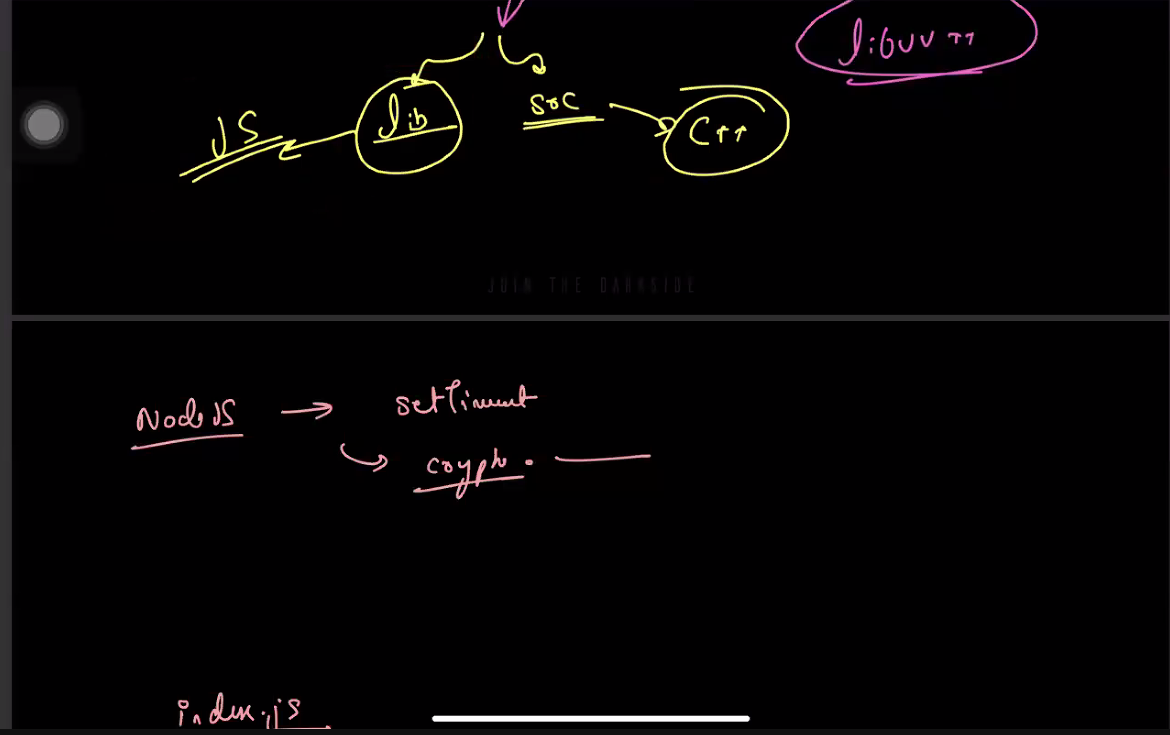 libuv ++
JS
lib
src
C++
JOIN THE DARKSIDE
NodeJS → setTimeout
crypto.
index.js